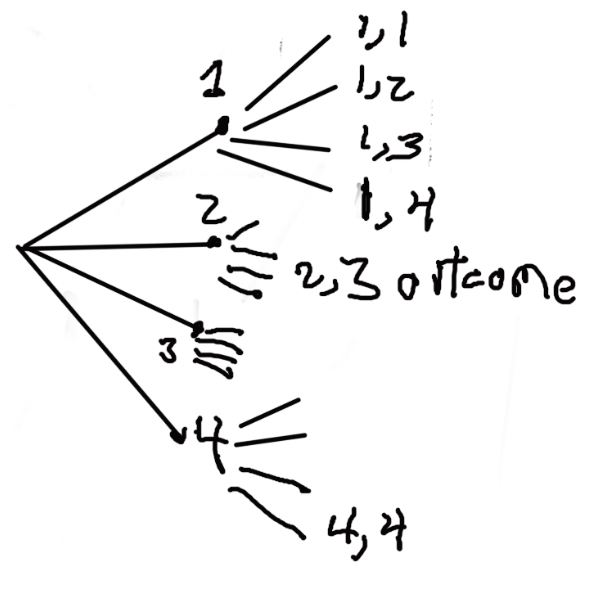 1
1,1
1,2
1,3
1,4
2
2,3 outcome
3
4
4,4